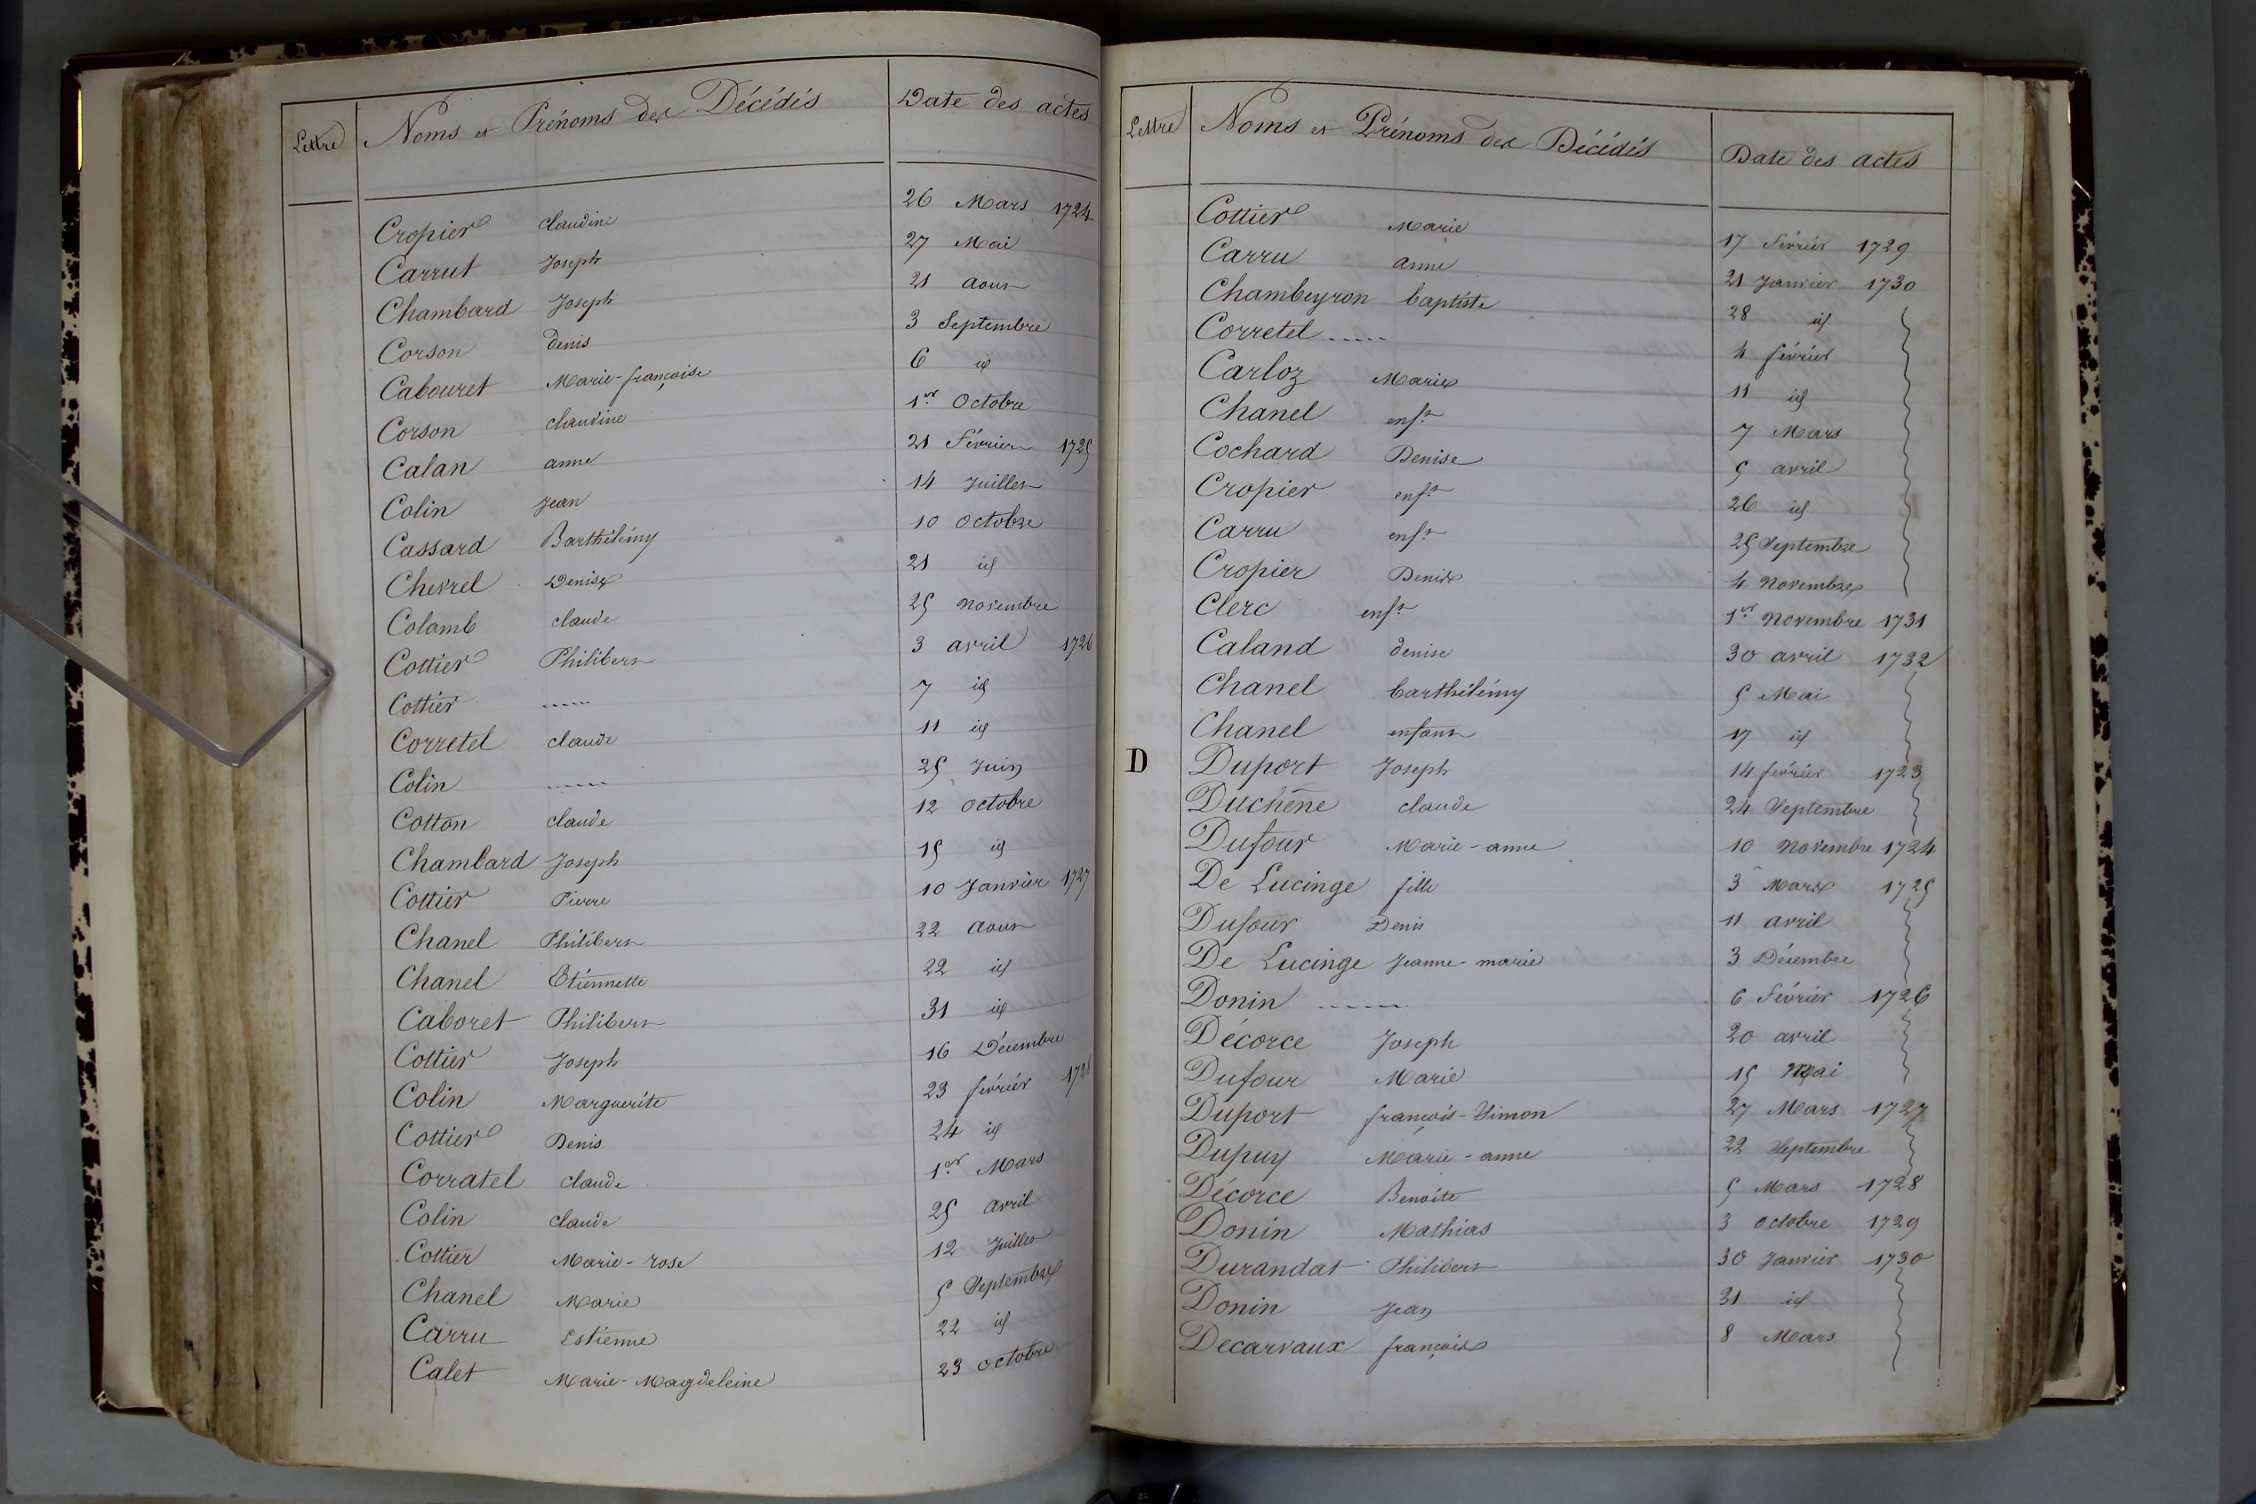 Lettre Noms et Prénoms des Décédés Date des actes
Cropier claudine 26 Mars 1724
Carrut Joseph 27 Mai
Chambard Joseph 21 aout
Corson denis 3 Septembre
Cabouret Marie-françoise 6 id
Corson claudine 1er Octobre
Calan anne 21 Février 1725
Colin Jean 14 Juillet
Cassard Barthélémy 10 Octobre
Chevrel Denise 21 id
Colomb claude 25 novembre
Cottier Philibert 3 avril 1726
Cottier ...... 7 id
Corretel claude 11 id
Colin ...... 25 Juin
Cotton claude 12 octobre
Chambard Joseph 15 id
Cottier Pierre 10 Janvier 1727
Chanel Philibert 22 Aout
Chanel Etiennette 22 id
Caboret Philibert 31 id
Cottier Joseph 16 Décembre
Colin Marguerite 23 février 1728
Cottier Denis 24 id
Corratel claude 1er Mars
Colin claude 25 avril
Cottier Marie-rose 12 Juillet
Chanel Marie 5 Septembre
Carru Estienne 22 id
Calet Marie-Magdeleine 23 octobre
Lettre Noms et Prénoms des Décédés Date des actes
Cottier Marie 17 Février 1729
Carru anne 21 Janvier 1730
Chambeyron baptiste 28 id
Corretel ...... 4 février
Carloz Marie 11 id
Chanel enft 7 Mars
Cochard Denise 5 avril
Cropier enft 26 id
Carru enft 25 Septembre
Cropier Denis 4 Novembre
Clerc enft 1er Novembre 1731
Caland denise 30 avril 1732
Chanel barthélémy 5 Mai
Chanel enfant 17 id
D Duport Joseph 14 février 1723
Duchêne claude 24 Septembre
Dufour Marie-anne 10 Novembre 1724
De Lucinge fille 3 Mars 1725
Dufour Denis 11 avril
De Lucinge Jeanne-marie 3 Décembre
Donin ...... 6 Février 1726
Décorce Joseph 20 avril
Dufour Marie 15 Mai
Duport françois-Simon 27 Mars 1727
Dupuy Marie-anne 22 Septembre
Décorce Benoite 5 Mars 1728
Donin Mathias 3 Octobre 1729
Durandat Philibert 30 Janvier 1730
Donin Jean 31 id
Decarvaux françois 8 Mars